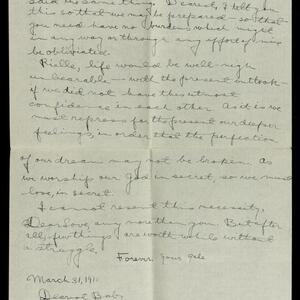 said the same thing. Dearest, I tell you
this so that we may be prepared - so that
you need have no burdens which might
in any way or through any effort of mine
be obliviated.
life would be well-nigh
unbearable - with the present outlook -
if we did not have the utmost
confidence in each other. As it is we
must repress for the present our deeper
feelings, in order that the perfection
of our dream may not be broken. As
we worship our God in secret, so we must
love, in secret.
I cannot resent this necessity,
Dear Love, any more than you. But after
all, few things are worth while without
a struggle.
Forever your
March 31, 191
Dearest Baby